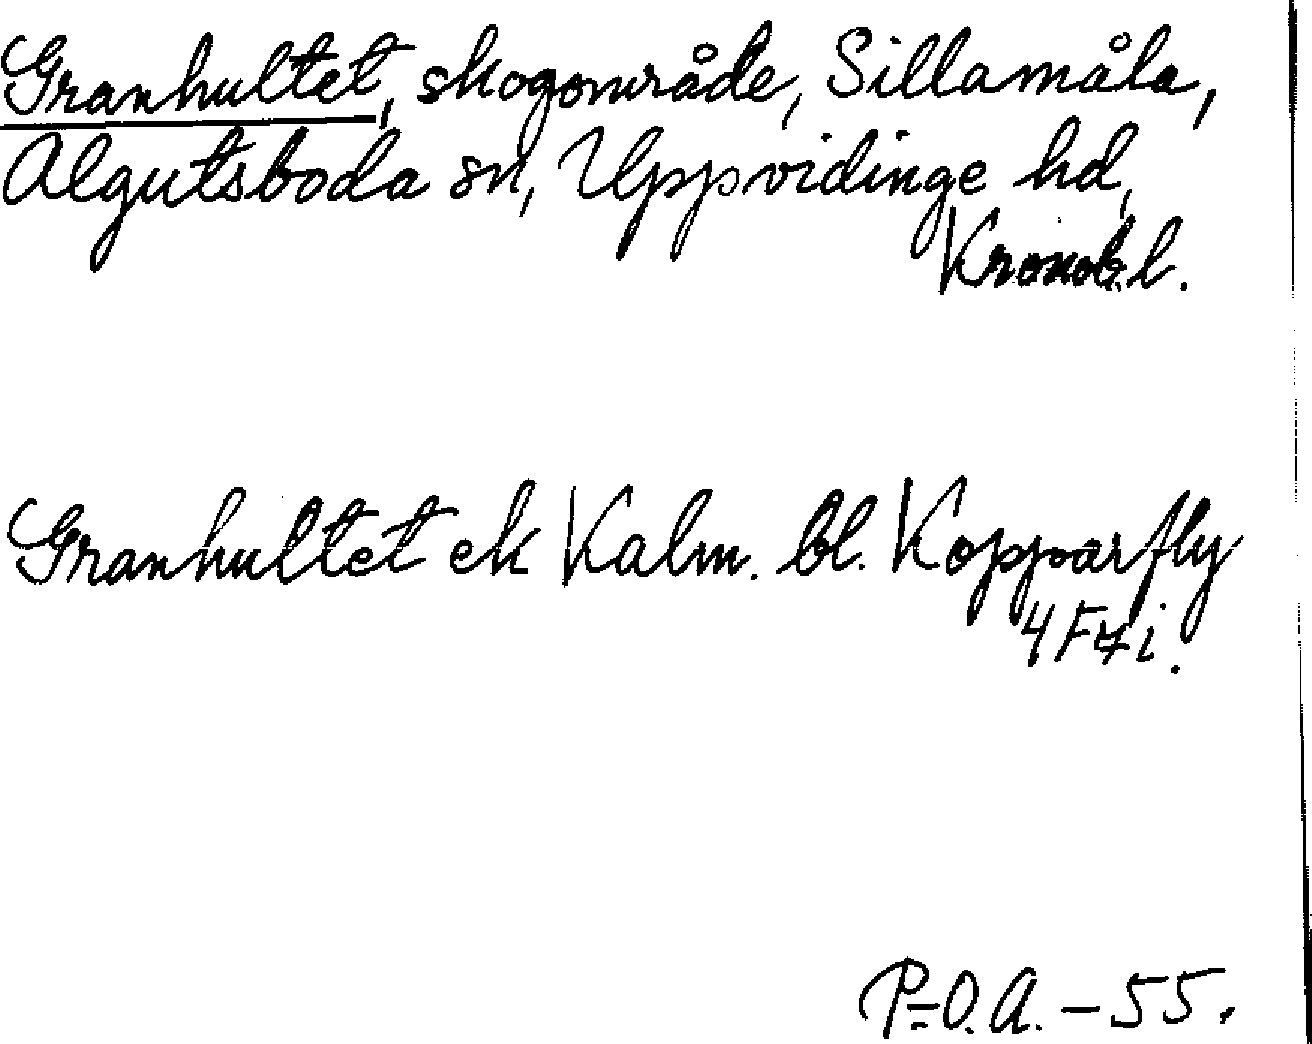 Granhultet, skogområde, Sillamåla,
Algutsboda sn, Uppvidinge hd,
Kronob. l.
Granhultet ek Kalm. bl. Kopparfly
4 F 7 i.
P-O.A. - 55.